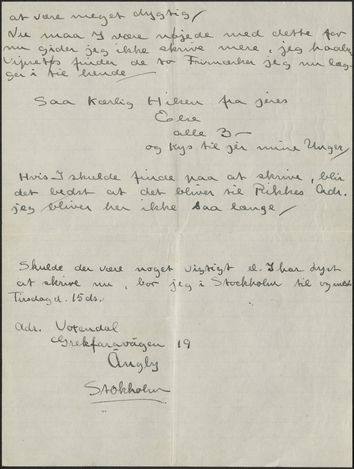 at være meget dygtig/
Nu maa I være nøjede med dette for
nu gider jeg ikke skrive mere, jeg haaber
finder de to Frimærker jeg nu læg-
ger i til hende
Saa Kærlig Hilsen fra jeres
alle 3 —
og Kys til jer mine Unger/
Hvis I skulde finde paa at skrive, blir
det bedst at det bliver til Rikkes Adr.
jeg bliver her ikke saa længe/
Skulde der være noget vigtigt el. I har lyst
at skrive nu, bor jeg i Stockholm til og med
Tirsdag d. 15 ds.
Adr. Voxendal
Grekfaravägen 19
Ängby
Stokholm